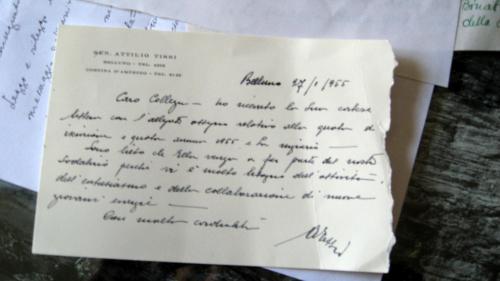 SEN. ATTILIO TISSI
BELLUNO - TEL.
CORTINA D'AMPEZZO - TEL.
Belluno 27/1/955
Caro Collega — ho ricevuto la Sua cortese
lettera con l'allegato assegno relativo alla quota di
iscrizione e quota anno 1955 e La ringrazio —
Sono lieto che Ella venga a far parte del nostro
Sodalizio perchè vi è molto bisogno dell'attività
dell'entusiasmo e della collaborazione di nuove
giovani energie —
Con molta cordialità
ATissi